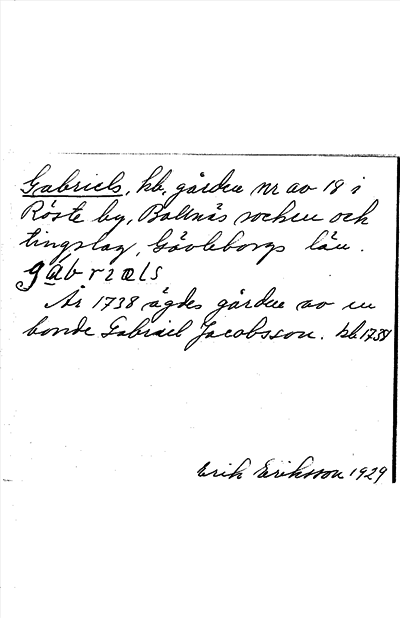 Gabriels, hb, gården nr av 18 i
Röste by, Bollnäs socken och
tingslag, Gävleborgs län.
gábriæls
År 1738 ägdes gården av en
bonde Gabriel Jacobsson. kb.1738
Erik Eriksson 1929